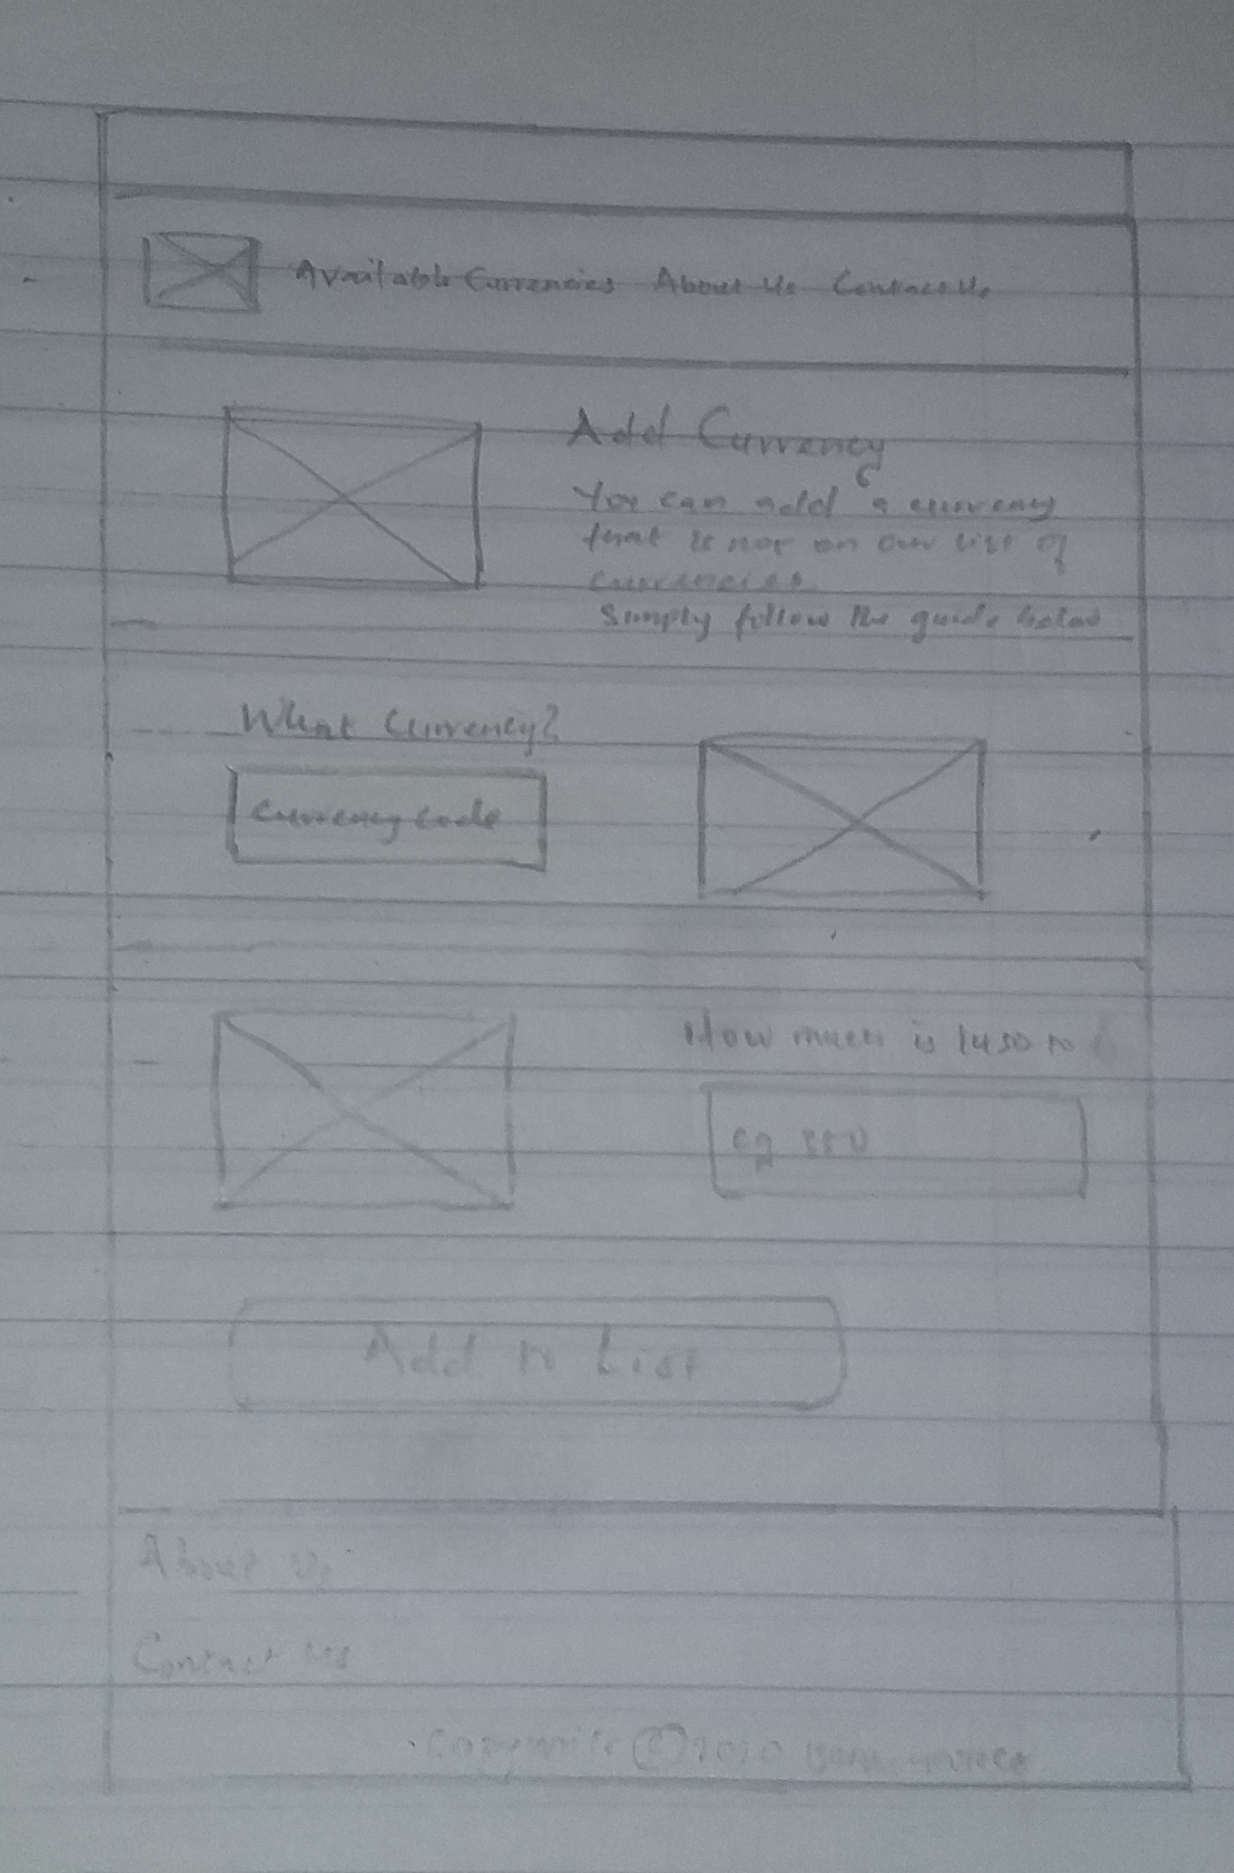 Available Currencies About Us Contact Us
Add Currency
You can add a currency
that is not on our list of
currencies.
Simply follow the guide below
What Currency?
Currency Code
How much is 1usd to
eg
Add to List
About Us
Contact Us
©2020